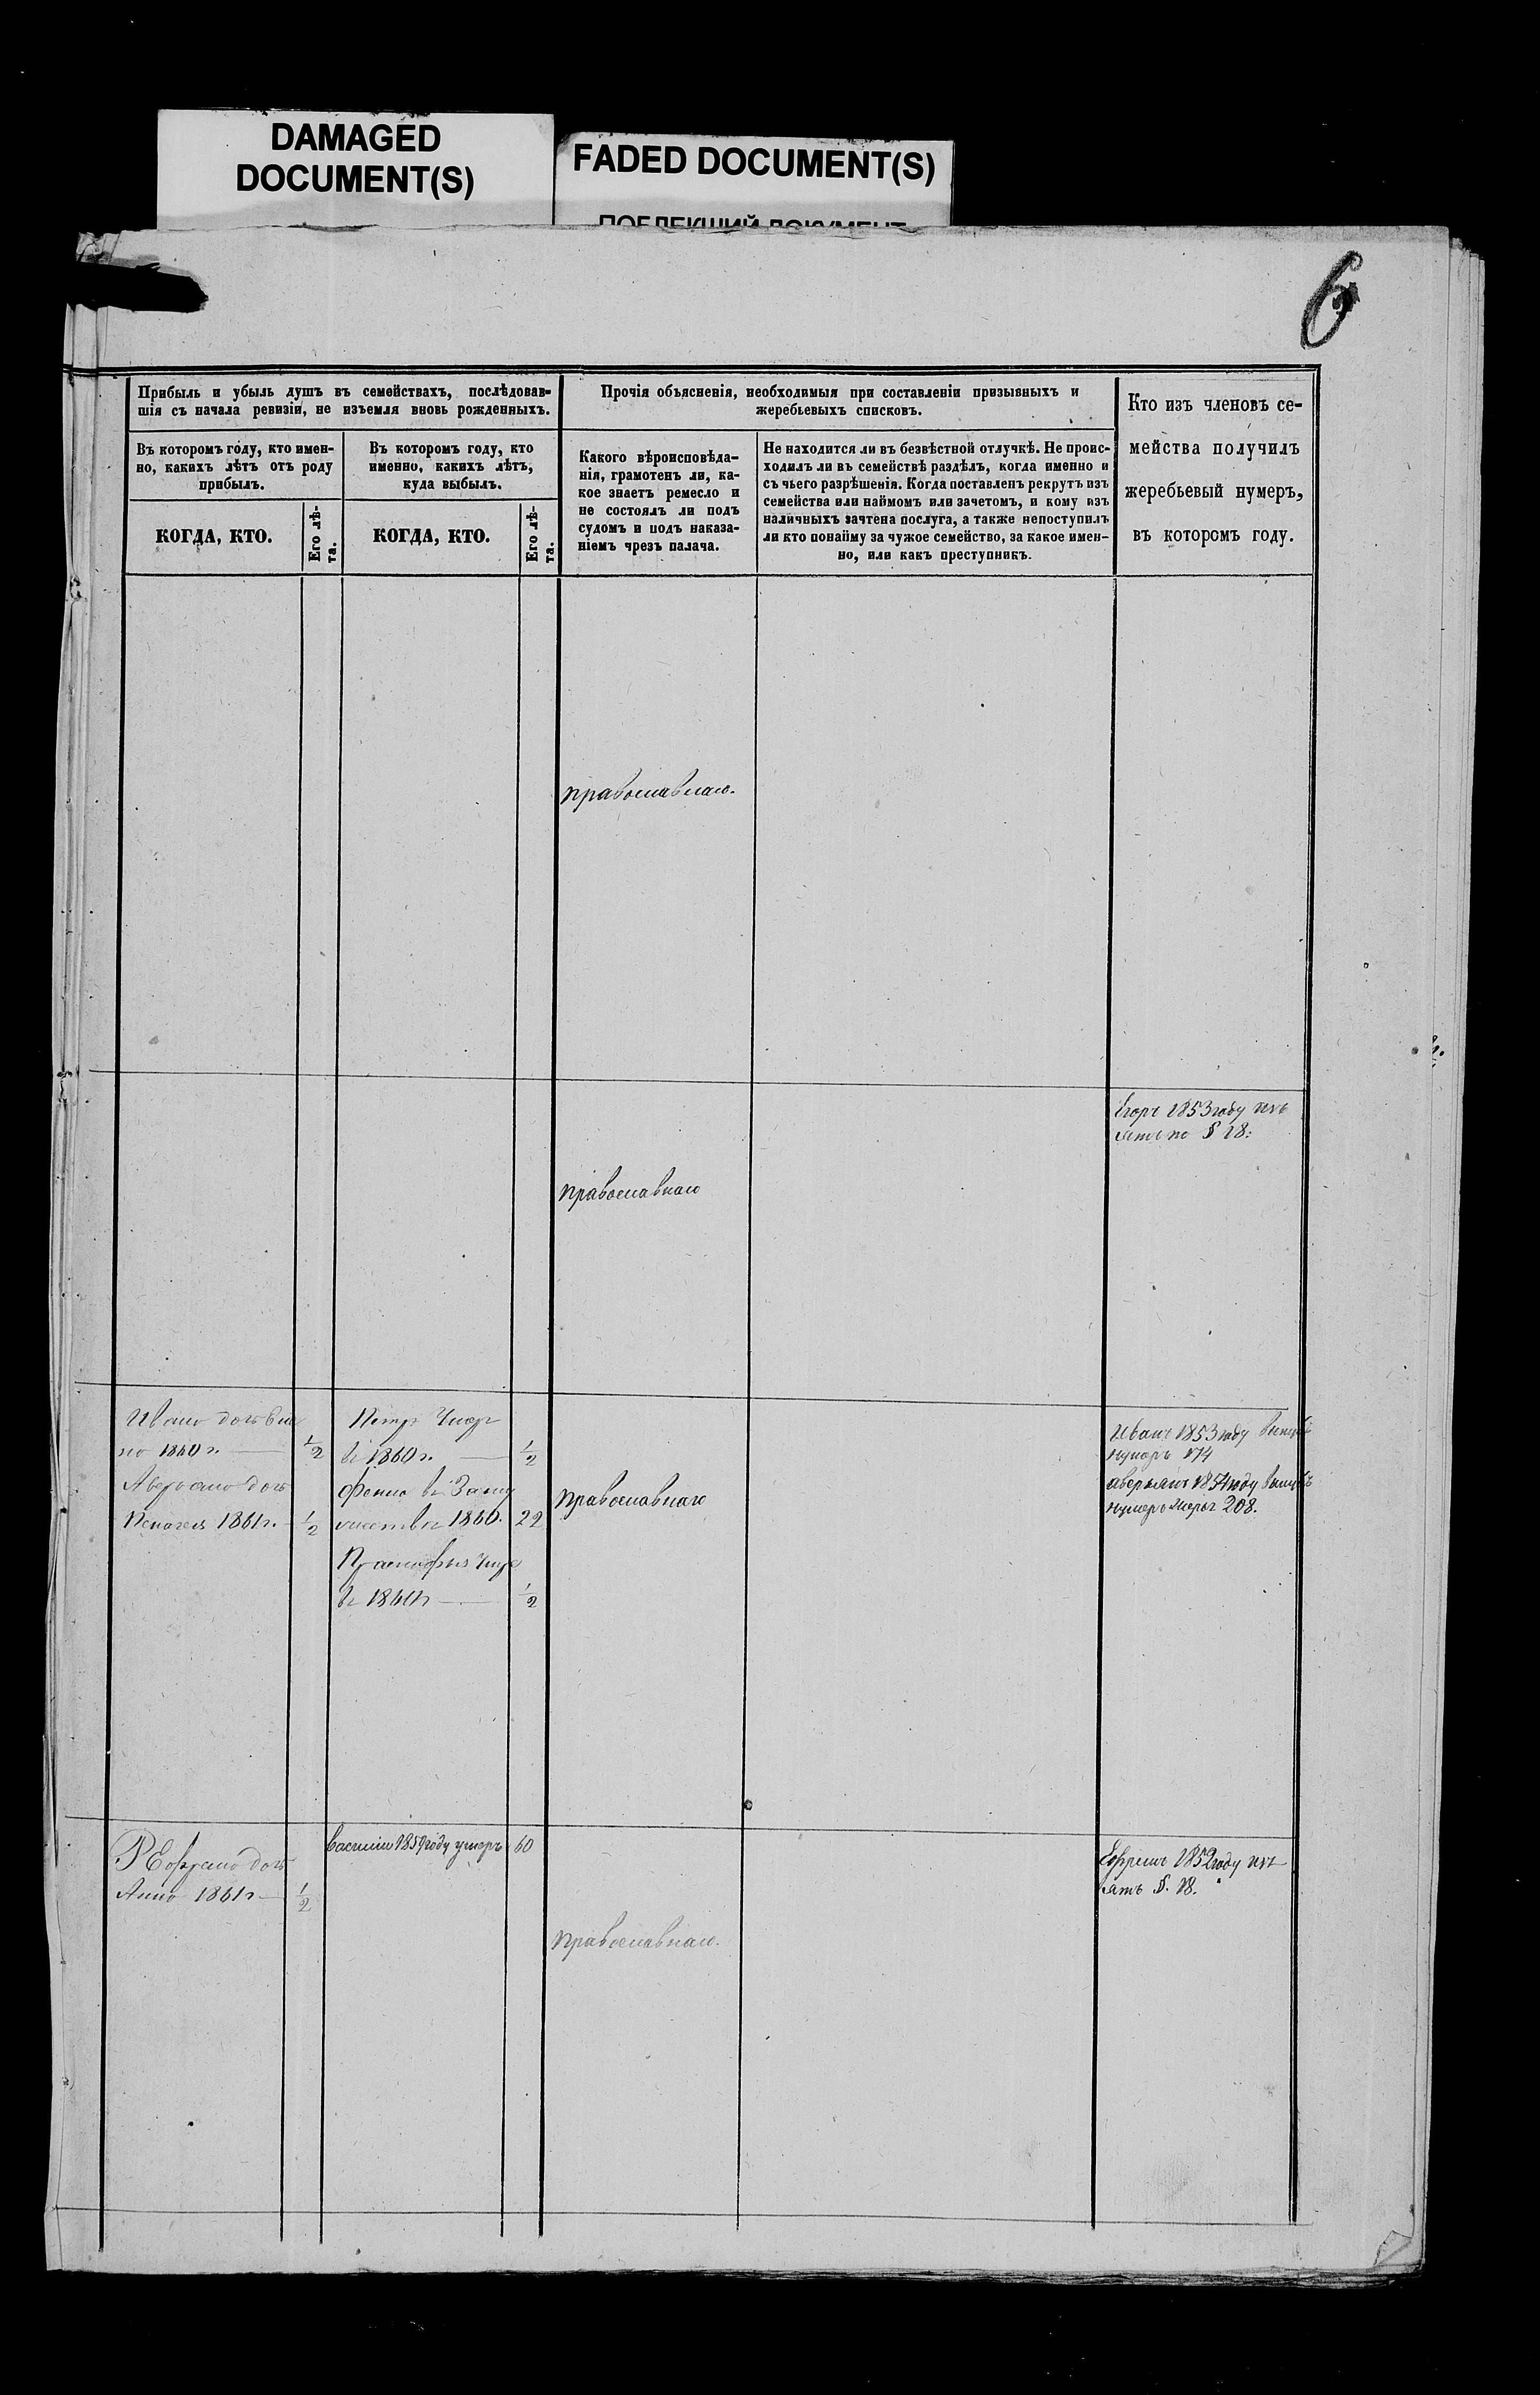 DAMAGED
DOCUMENT(S)
FADED DOCUMENT(S)
ПОБЛЕКШИЙ ДОКУМЕНТ
6
Прибыль и убыль душъ въ семействахъ, послѣдовав-
шія съ начала ревизіи, не изъемля вновь рожденныхъ.
Въ которомъ году, кто имен-
но, какихъ лѣтъ отъ роду
прибылъ.
КОГДА, КТО.
Его лѣ-
та.
Въ которомъ году, кто
именно, какихъ лѣтъ,
куда выбылъ.
КОГДА, КТО.
Его лѣ-
та.
Прочія объясненія, необходимыя при составленіи призывныхъ и
жеребьевыхъ списковъ.
Какого вѣроисповѣда-
нія, грамотенъ ли, ка-
кое знаетъ ремесло и
не состоялъ ли подъ
судомъ и подъ наказа-
ніемъ чрезъ палача.
Не находится ли въ безвѣстной отлучкѣ. Не проис-
ходилъ ли въ семействѣ раздѣлъ, когда именно и
съ чьего разрѣшенія. Когда поставленъ рекрутъ изъ
семейства или наймомъ или зачетомъ, и кому изъ
наличныхъ зачтена послуга, а также непоступилъ
ли кто понайму за чужое семейство, за какое имен-
но, или какъ преступникъ.
Кто изъ членовъ се-
мейства получилъ
жеребьевый нумеръ,
въ которомъ году.
православнаго.
Егоръ 1853 году изъ
ятъ по § 18:
православнаго
Ивана дочь
1860 г. 1/2
Аверьяна дочь
Пелагея 1861 г. 1/2
Петръ Умеръ
въ 1860 г. 1/2
въ
1860. 22
въ 1860 г 1/2
православнаго
Иванъ 1853 году
нумеръ 174
Аверьянъ 1854 году
нумеръ 208.
Ефрема дочь
Анна 1861 г 1/2
Василий 1859 году умеръ 60
православнаго.
Ефремъ 1852 году изъ
ятъ §. 18.